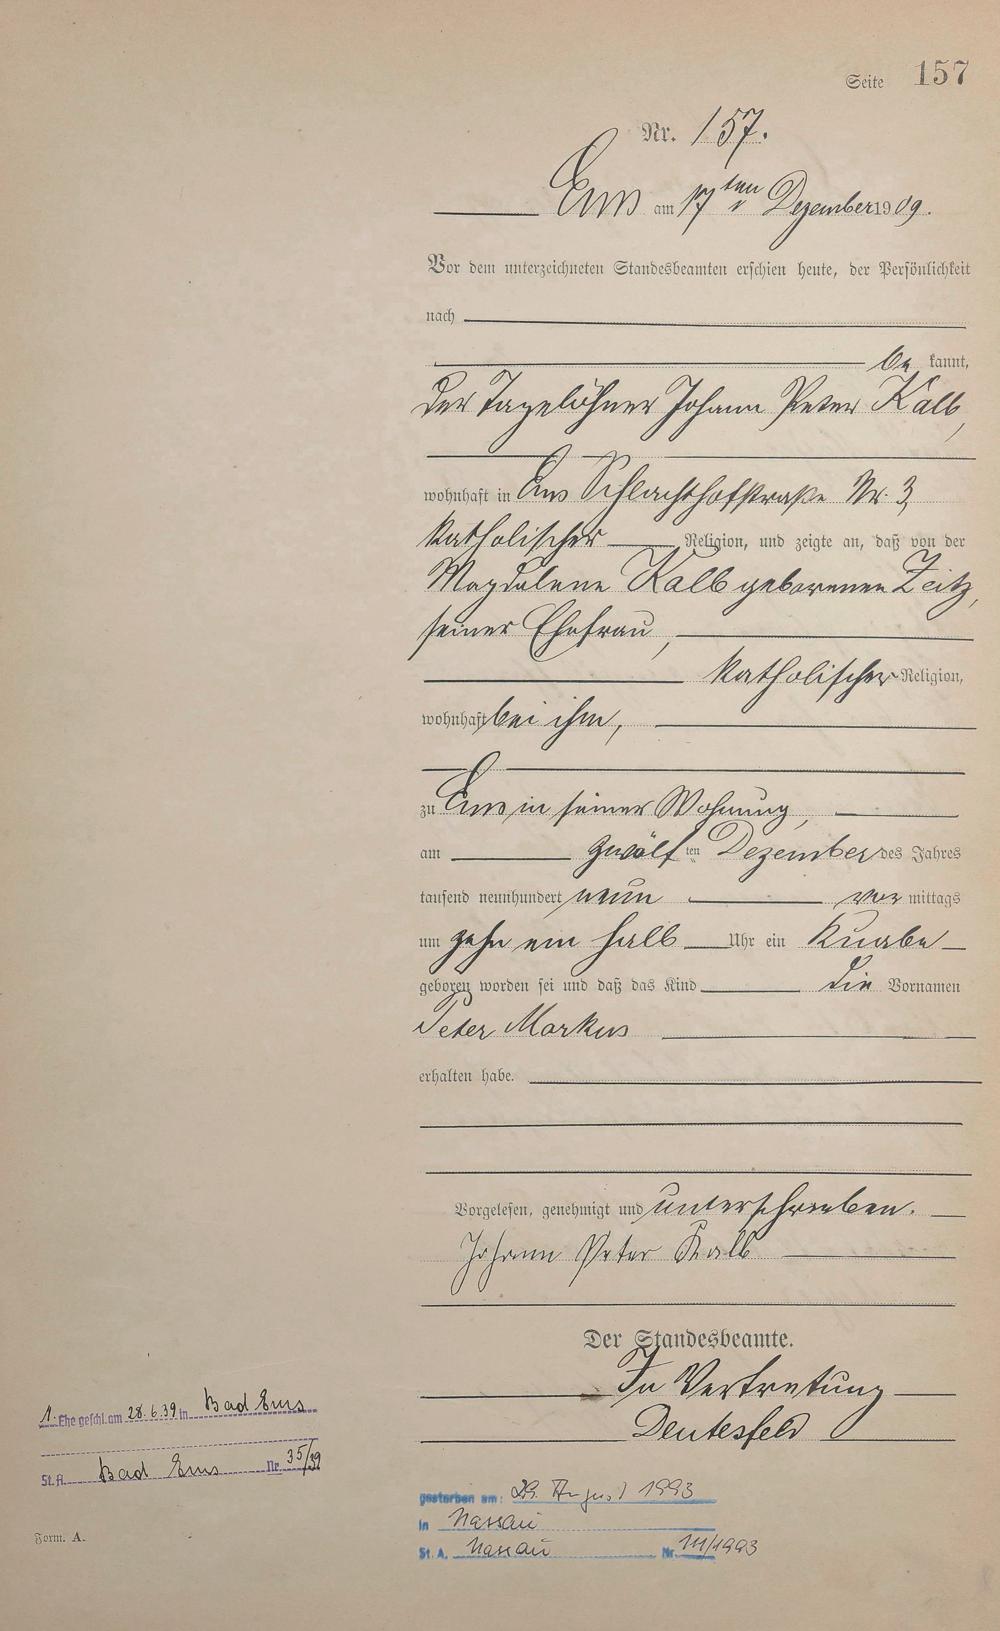 Seite 157
Nr. 157.
Ems am 17ten Dezember 1909.
Vor dem unterzeichneten Standesbeamten erschien heute, der Persönlichkeit
nach
be kannt,
der Tagelöhner Johann Peter Kalb,
wohnhaft in Ems Schlachthofstraße Nr. 3,
katholischer Religion, und zeigte an, daß von der
Magdalene Kalb geborenen Zeitz,
seiner Ehefrau,
katholischer Religion,
wohnhaft bei ihm,
zu Ems in seiner Wohnung,
am zwölf ten Dezember des Jahres
tausend neunhundert neun vor mittags
um zehn ein halb Uhr ein Knabe
geboren worden sei und daß das Kind die Vornamen
Peter Markus
erhalten habe.
Vorgelesen, genehmigt und unterschrieben.
Johann Peter Kalb
Der Standesbeamte.
In Vertretung
Deutesfeld
1. Ehe geschl. am 28.6.39 in Bad Ems
St.A. Bad Ems Nr. 35/39
gestorben am: 29. August 1993
in Nassau
St. A. Nassau Nr. 111/1993
Form. A.